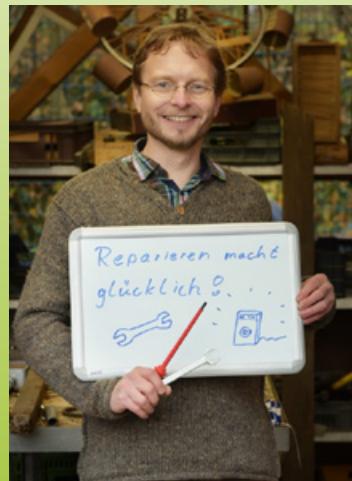 Reparieren macht
glücklich!